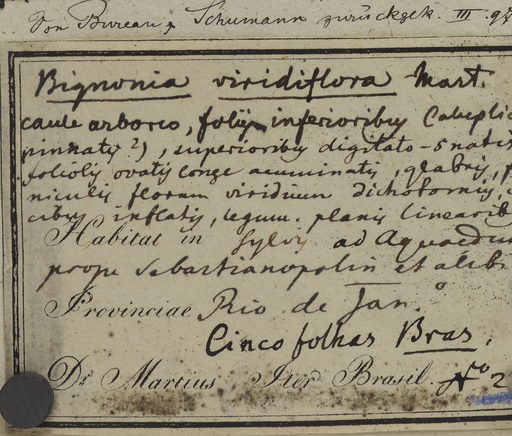 Von Bureau & Schumann zurückgek. III. 92
Bignonia viridiflora Mart.
caule arboreo, foliis inferioribus (abruplic
pinnatis ?), superioribus digitato-5natis
foliolis ovatis longe acuminatis, glabris, p
niculis florum viridium dichotomis,
cibus inflatis, legum. planis linearib
Habitat in sylvis ad Aquaedu
prope Sebastianopolin et alibi
Provinciae Rio de Jan.º
Cinco folhas Bras.
Dr. Martius Iter Brasil. Nº 2